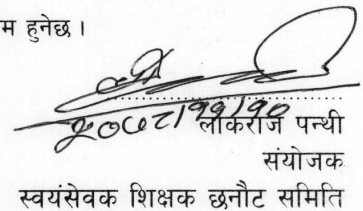 म हुनेछ ।
२०७८/११/१०
लोकराज पन्थी
संयोजक
स्वयंसेवक शिक्षक छनौट समिति